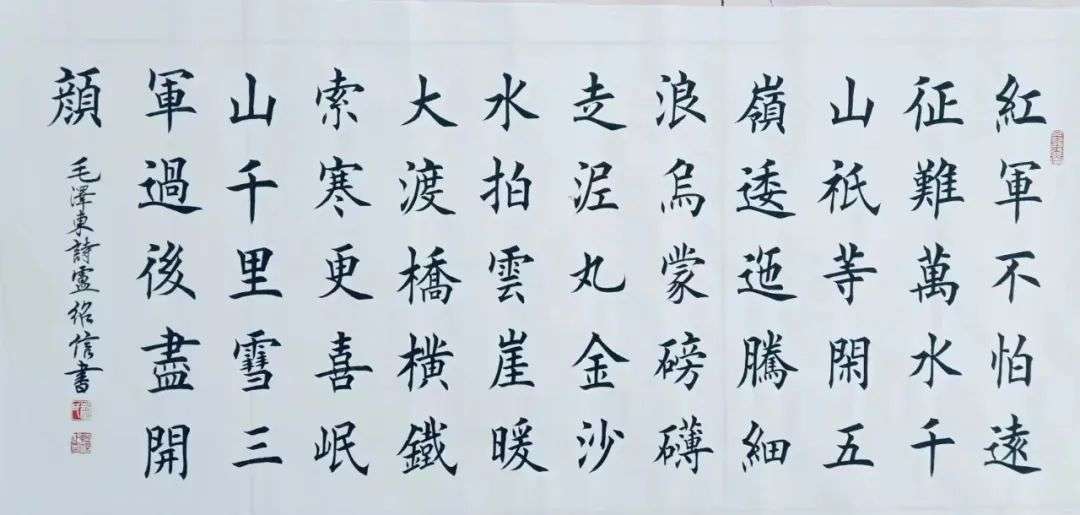 紅軍不怕遠
征難萬水千
山衹等閑五
嶺逶迤騰細
浪烏蒙磅礴
走泥丸金沙
水拍雲崖暖
大渡橋橫鐵
索寒更喜岷
山千里雪三
軍過後盡開
顏
毛澤東詩盧紹信書